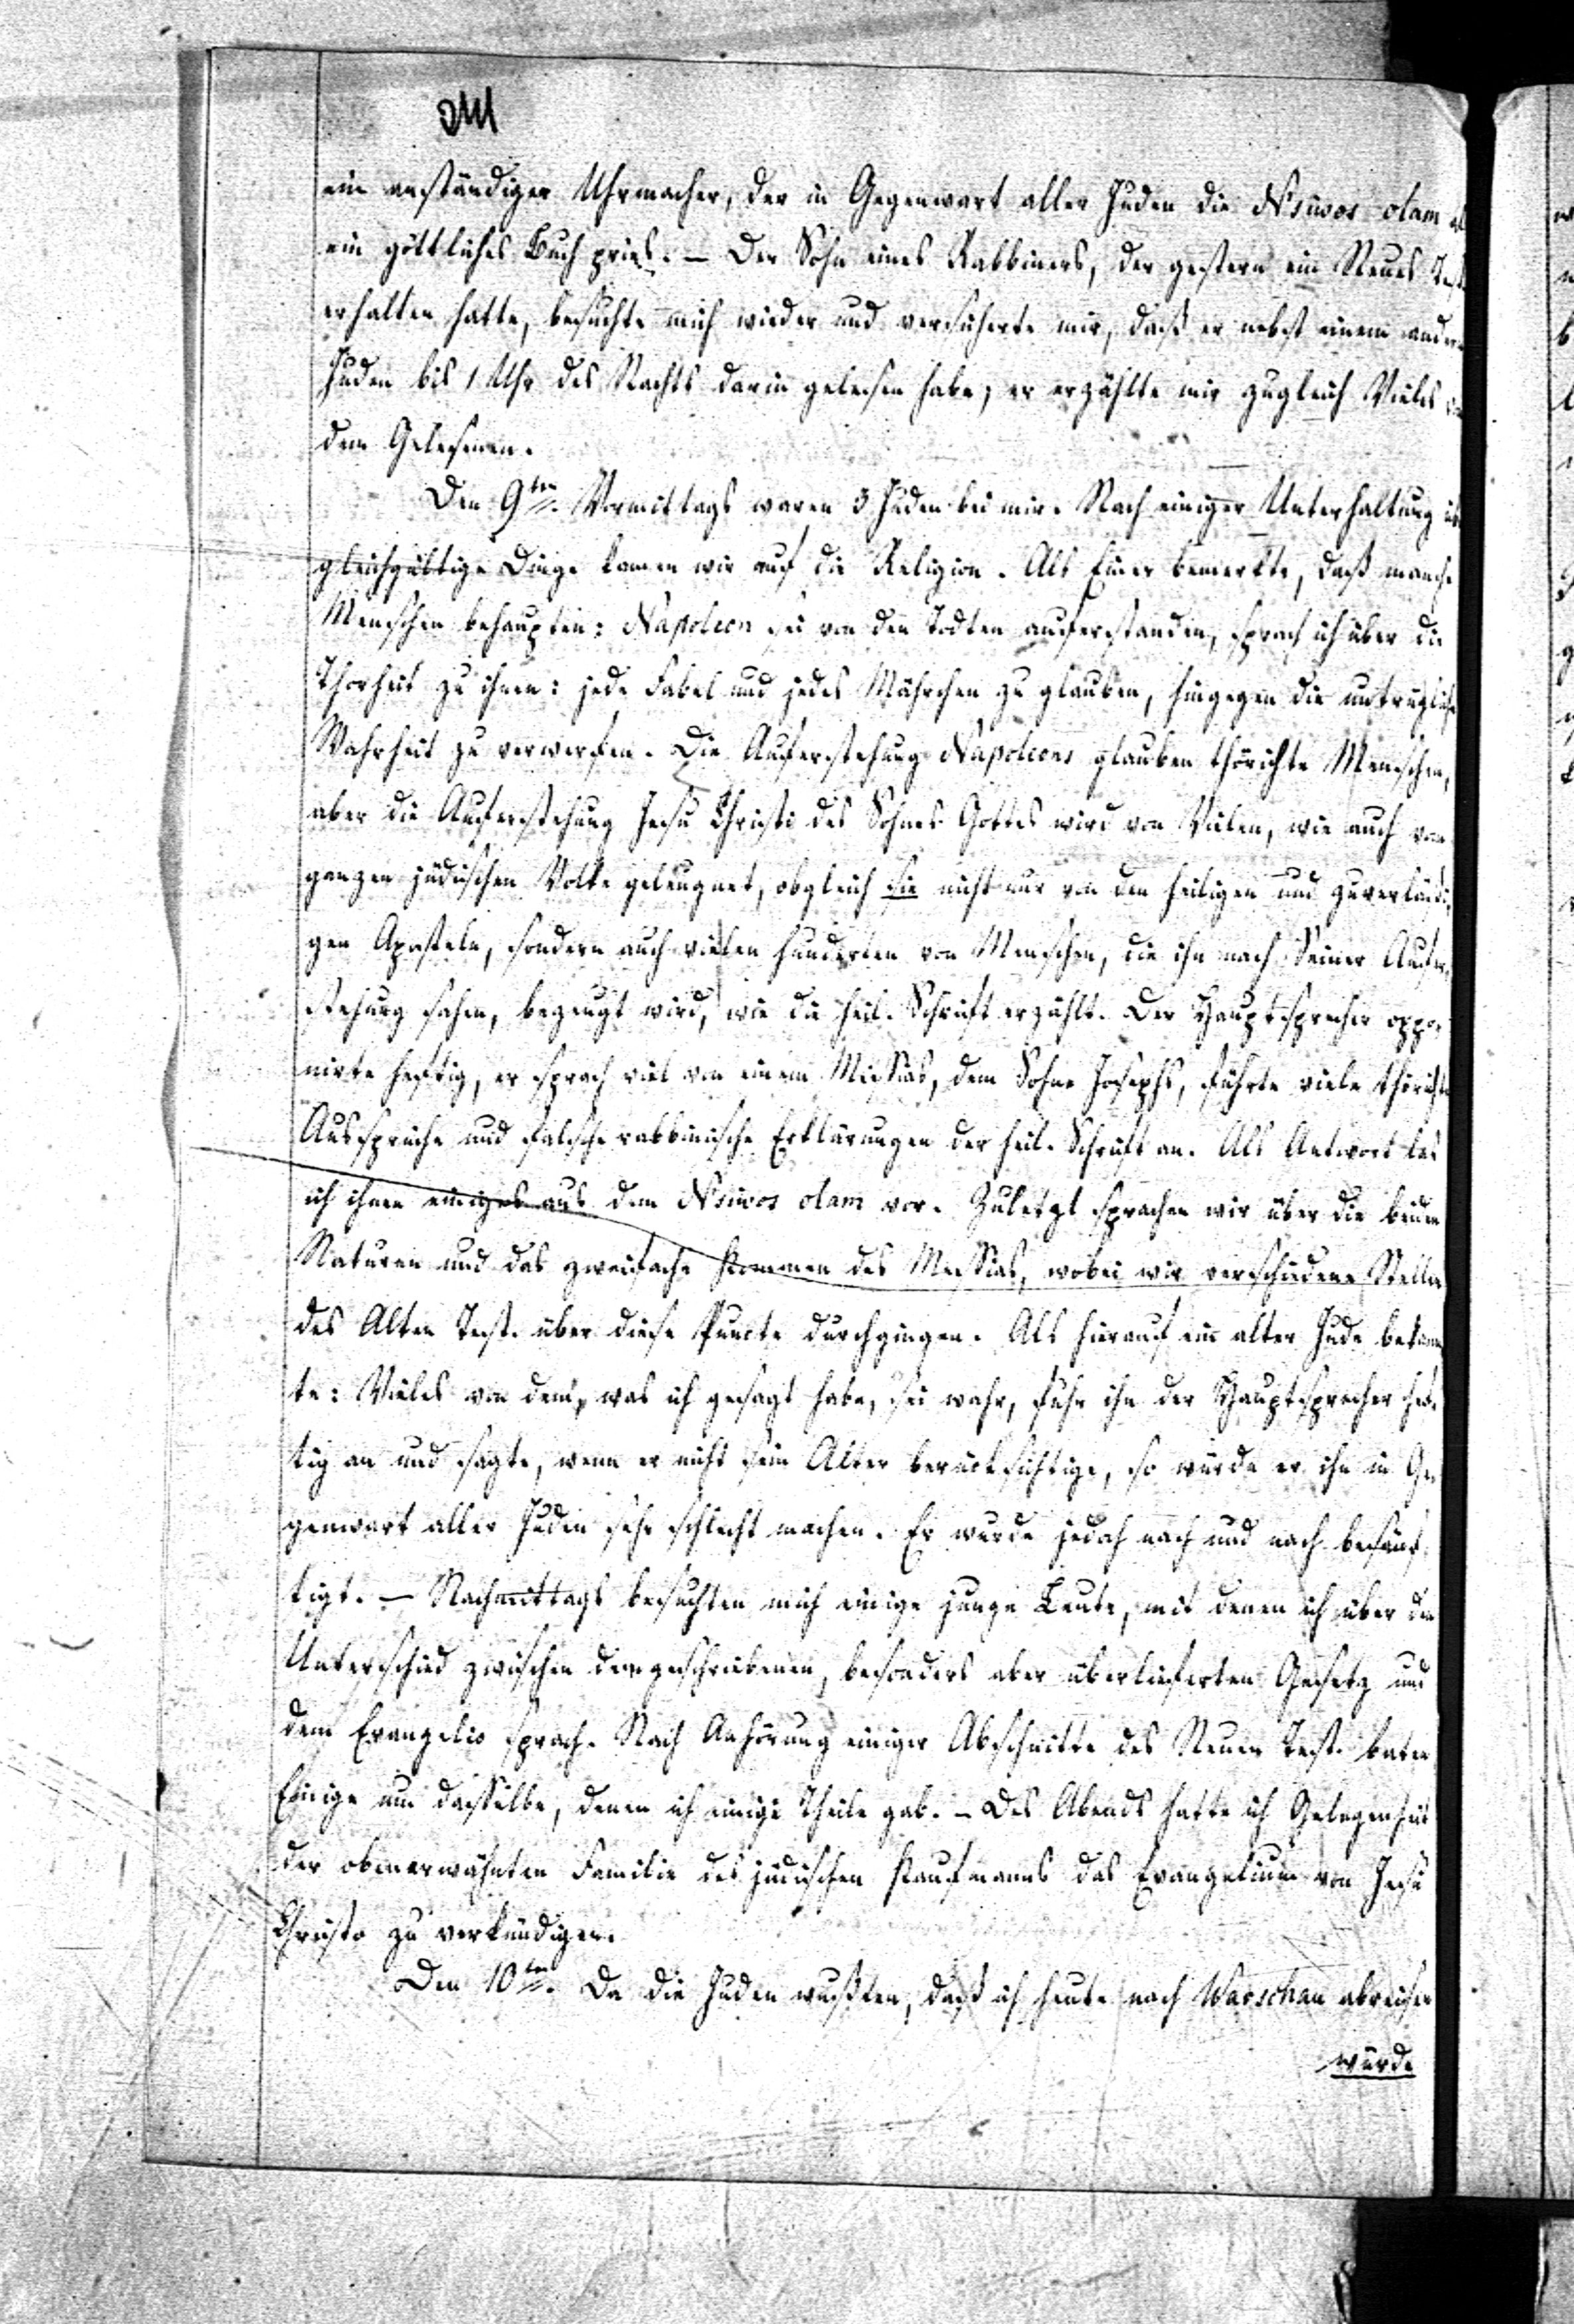 ein anständiger Uhrmacher, der in Gegenwart aller Juden die Nsiwos olam
ein göttliches Buch pries. – Der Sohn eines Rabbiners, der gestern ein Neues Test
erhalten hatte, besuchte mich wieder und versicherte mir, daß er nebst einem andern
Juden bis 1 Uhr des Nachts darin gelesen habe; er erzählte mir zugleich Vieles
dem Gelesenen.
Den 9ten. Vormittags waren 3 Juden bei mir. Nach einiger Unterhaltung
gleichgültige Dinge kamen wir auf die Religion. Als Einer bemerkte, daß manche
Menschen behaupten: Napoleon sei von den Todten auferstanden, sprach ich über die
Thorheit zu ihnen: jede Fabel und jedes Mährchen zu glauben, hingegen die untrügliche
Wahrheit zu verwerfen. Die Auferstehung Napoleons glauben thörichte Menschen,
aber die Auferstehung Jesu Christi des Sohnes Gottes wird von Vielen, wie auch vom
ganzen jüdischen Volke geleugnet, obgleich sie nicht nur von den heiligen und zuverläßi-
gen Aposteln, sondern auch vielen hunderten von Menschen, die ihn nach Seiner Aufer-
stehung sahen, bezeugt wird, wie die heil. Schrift erzählt. Der Hauptsprecher oppo-
nirte heftig, er sprach viel von einem Messias, dem Sohne Josephs, führte viele thörichte
Aussprüche und falsche rabbinische Erklärungen der heil. Schrift an. Als Antwort las
ich ihnen einiges aus dem Nsiwos olam vor. Zuletzt sprachen wir über die beiden
Naturen und das zweifache Kommen des Messias, wobei wir verschiedene Stellen
des Alten Test. über diese Puncte durchgingen. Als hierauf ein alter Jude bekann-
te: Vieles von dem, was ich gesagt habe, sei wahr, fuhr ihn der Hauptsprecher hef-
tig an und sagte, wenn er nicht sein Alter berücksichtige, so würde er ihn in Ge-
genwart aller Juden sehr schlecht machen. Er wurde jedoch nach und nach besänf-
tigt. – Nachmittags besuchten mich einige junge Leute, mit denen ich über den
Unterschied zwischen dem geschriebenen, besonders aber überlieferten Gesetz und
dem Evangelio sprach. Nach Anhörung einiger Abschnitte des Neuen Test. baten
Einige um dasselbe, denen ich einige Theile gab. – Des Abends hatte ich Gelegenheit
der obenerwähnten Familie des jüdischen Kaufmanns das Evangelium von Jesu
Christo zu verkündigen.
Den 10ten. Da die Juden wußten, daß ich heute nach Warschau abreisen
würde